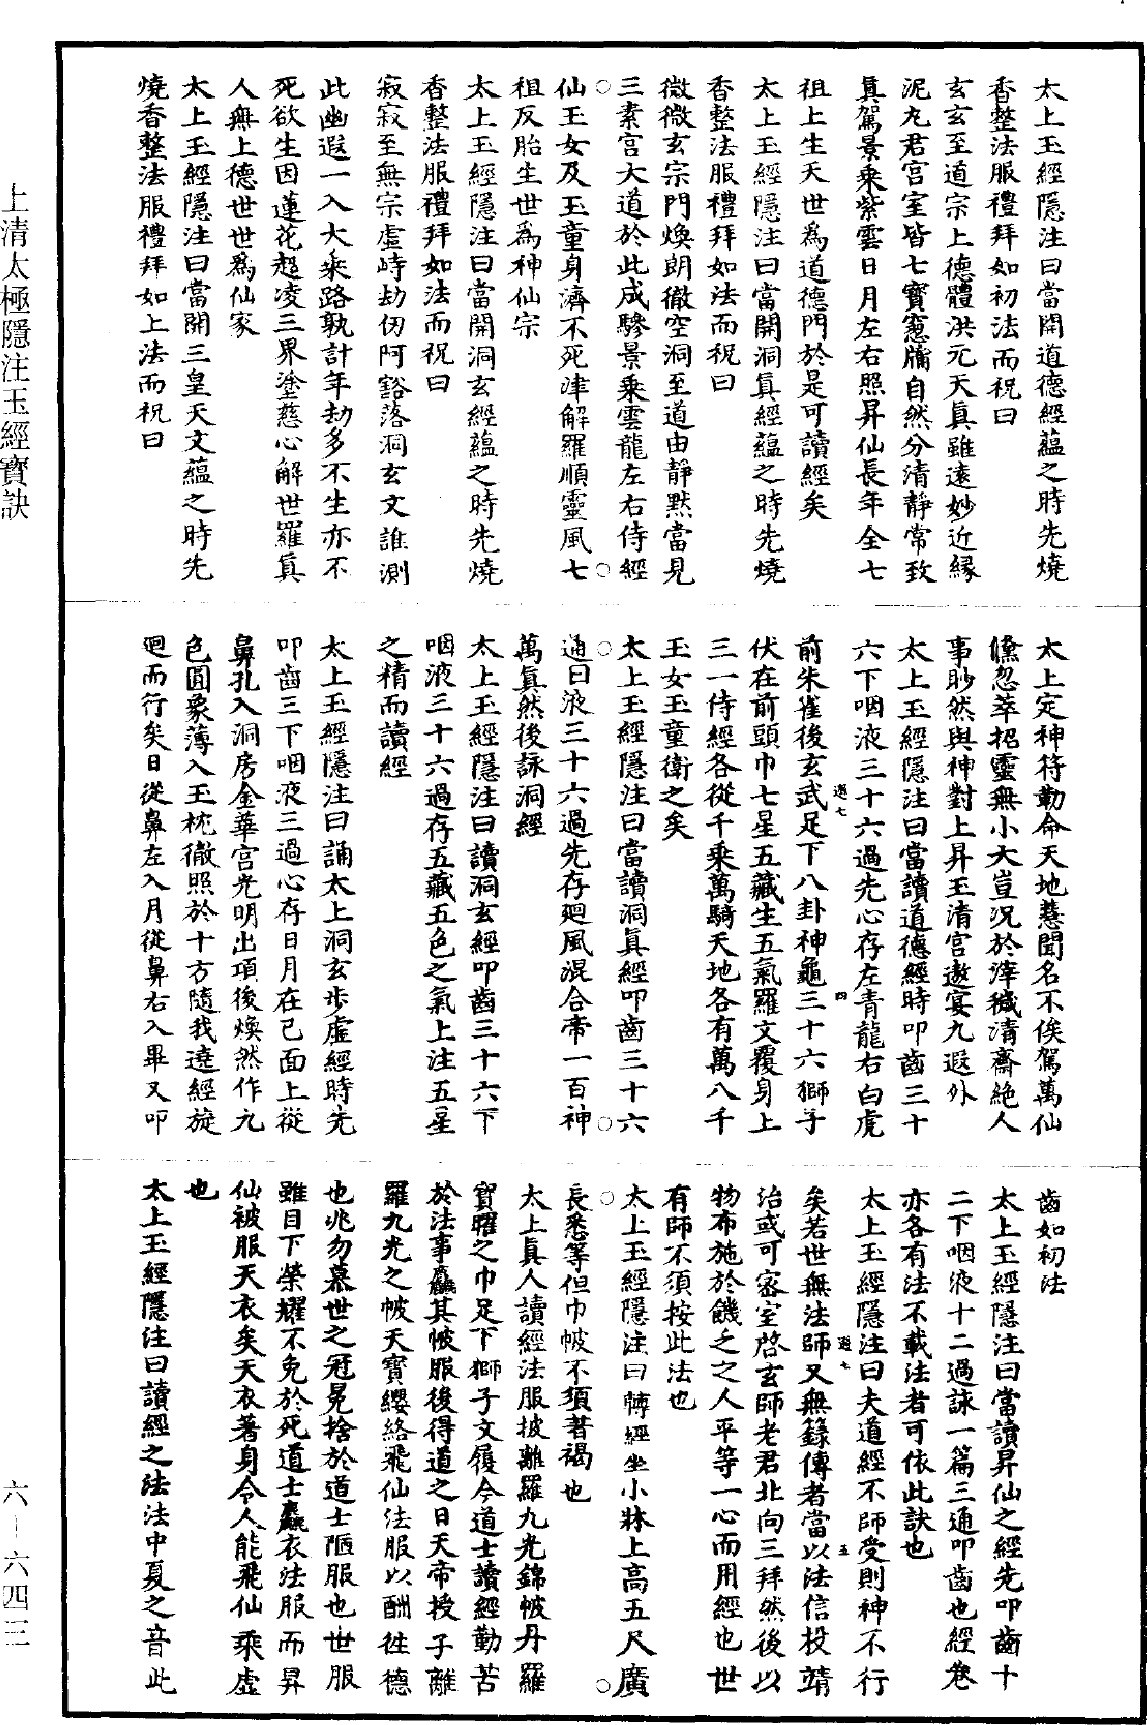 太上玉經隱注曰當開道德經蘊之時先燒
香整法服禮拜如初法而祝曰
玄玄至道宗上德體洪元天真雖遠妙近緣
泥丸君宮室皆七寶窻牖自然分清靜常致
真駕景乘紫雲日月左右照昇仙長年全七
祖上生天世爲道德門於是可讀經矣
太上玉經隱注曰當開洞真經蘊之時先燒
香整法服禮拜如法而祝曰
微微玄宗門煥朗徹空洞至道由靜默當見
三素宮大道於此成驂景乘雲龍左右侍經
仙玉女及玉童身濟不死津解羅順靈風七
祖反胎生世爲神仙宗
太上玉經隱注曰當開洞玄經蘊之時先燒
香整法服禮拜如法而祝曰
寂寂至無宗虛峙劫仞阿豁落洞玄文誰測
此幽遐一入大乘路孰計年劫多不生亦不
死欲生因蓮花超凌三界塗慈心解世羅真
人無上德世世爲仙家
太上玉經隱注曰當開三皇天文蘊之時先
燒香整法服禮拜如上法而祝曰
太上定神符勅命天地慧聞名不俟駕萬仙
儵忽萃招靈無小大豈況於滓穢清齋絕人
事眇然與神對上昇玉清宮遨宴九遐外
太上玉經隱注曰當讀道德經時叩齒三十
六下咽液三十六過先心存左青龍右白虎
前朱雀後玄武足下八卦神龜三十六獅子
伏在前頭巾七星五藏生五氣羅文覆身上
三一侍經各從千乘萬騎天地各有萬八千
玉女玉童衛之矣
太上玉經隱注曰當讀洞真經叩齒三十六
通曰液三十六過先存廻風混合帝一百神
萬真然後詠洞經
太上玉經隱注曰讀洞玄經叩齒三十六下
咽液三十六過存五藏五色之氣上注五星
之精而讀經
太上玉經隱注曰誦太上洞玄步虛經時先
叩齒三下咽液三過心存日月在己面上從
鼻孔入洞房金華宮光明出項後煥然作九
色圓象薄入玉枕徹照於十方隨我遶經旋
廻而行矣日從鼻左入月從鼻右入畢又叩
齒如初法
太上玉經隱注曰當讀昇仙之經先叩齒十
二下咽液十二過詠一篇三通叩齒也經卷
亦各有法不載法者可依此訣也
太上玉經隱注曰夫道經不師受則神不行
矣若世無法師又無籙傳者當以法信投靖
治或可密室啓玄師老君北向三拜然後以
物布施於饑乏之人平等一心而用經也世
有師不須按此法也
太上玉經隱注曰轉經坐小牀上高五尺廣
長悉等但巾帔不須著褐也
太上真人讀經法服披離羅九光錦帔丹羅
寶曜之巾足下獅子文履今道士讀經勤苦
於法事麤其帔服後得道之日天帝授子離
羅九光之帔天寶纓絡飛仙法服以酬徃德
也兆勿慕世之冠冕捨於道士陋服也世服
雖目下榮耀不免於死道士麤衣法服而昇
仙被服天衣矣天衣著身令人能飛仙乘虛
也
太上玉經隱注曰讀經之法法中夏之音此
遜七
四
遜七
五
上清太極隱注玉經寶訣
六-六四三